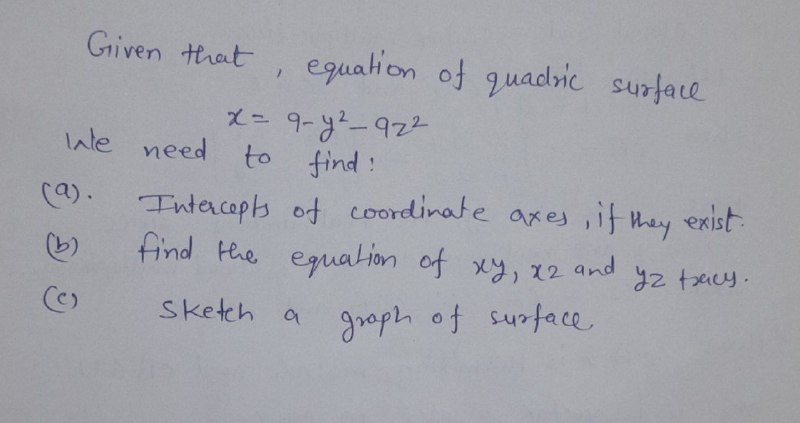 Given that, equation of quadric surface
x = 9-y²-9z²
We need to find:
(a). Intercepts of coordinate axes, if they exist.
(b) find the equation of xy, xz and yz traces.
(c) Sketch a graph of surface.